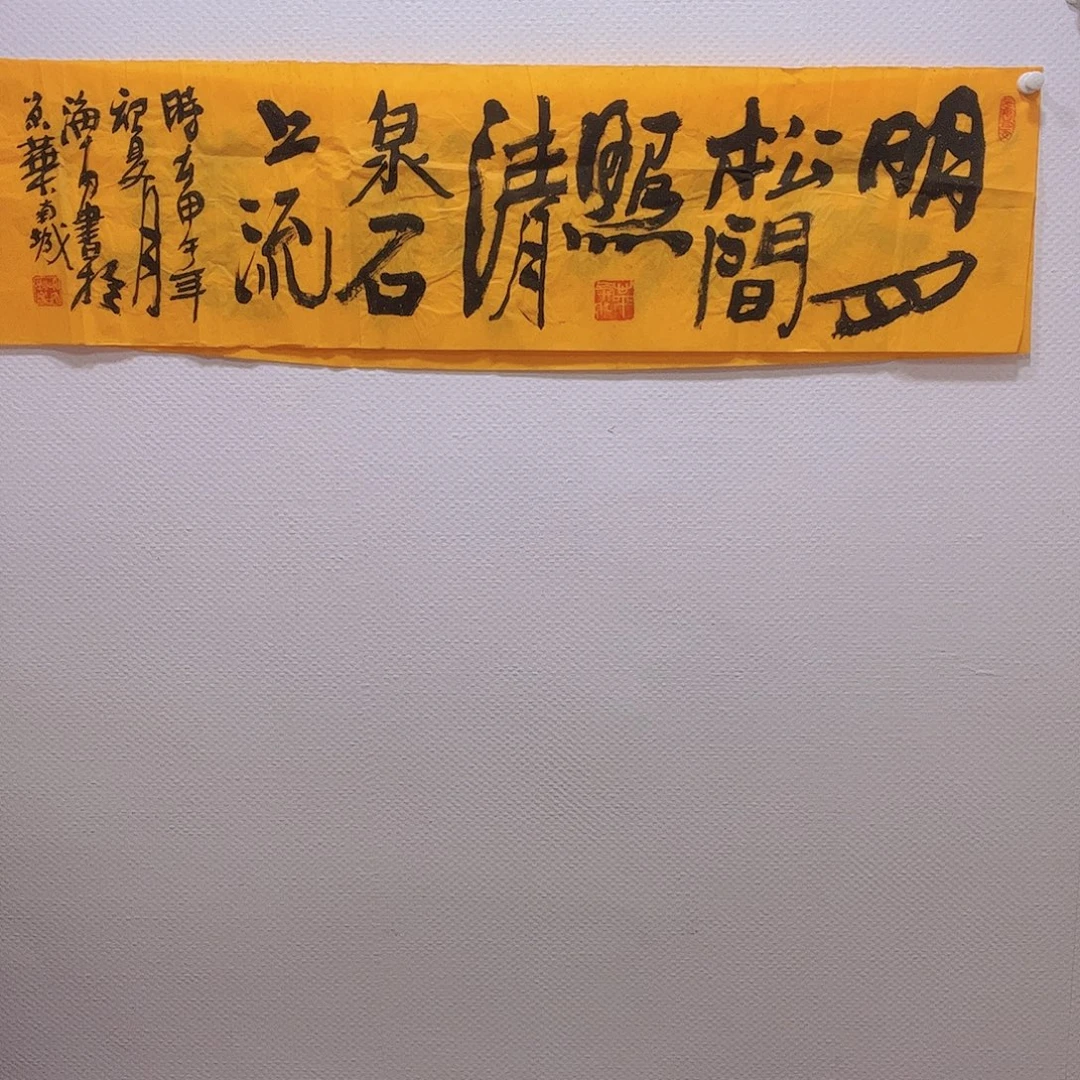 明月
松間
照
清
泉石
上流
時在甲午年
初夏月
海力書於
京華南城